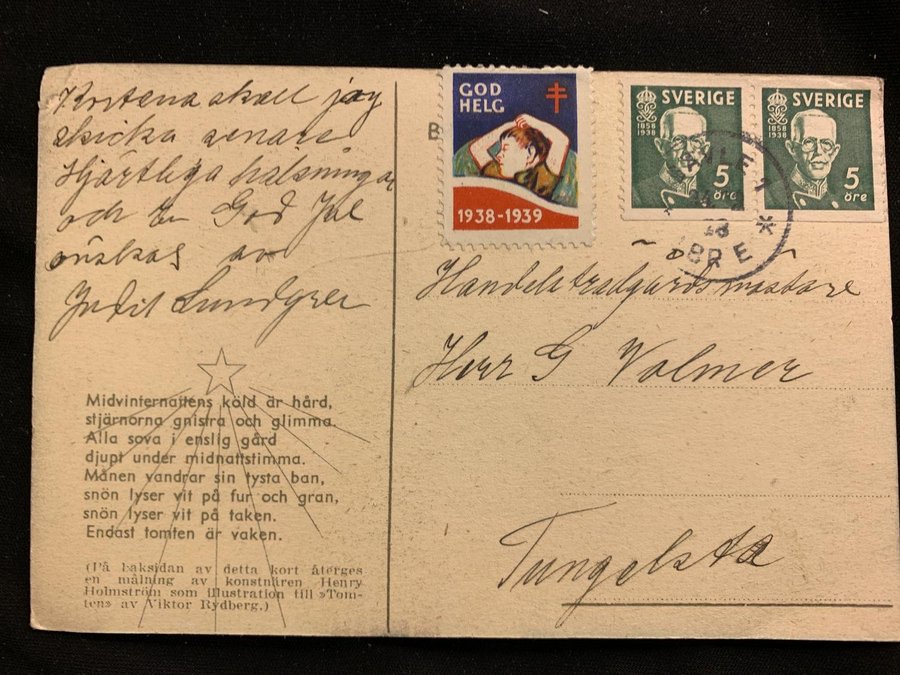 skall jag
skicka senare
Hjärtliga hälsningar
och en God Jul
önskas av
Judit Lundgren
Midvinternattens köld är hård,
stjärnorna gnistra och glimma.
Alla sova i enslig gård
djupt under midnattstimma.
Månen vandrar sin tysta ban,
snön lyser vit på fur och gran,
snön lyser vit på taken.
Endast tomten är vaken.
(På baksidan av detta kort återges
en målning av konstnären Henry
Holmström som illustration till »Tom-
ten» av Viktor Rydberg.)
B
GOD
HELG
1938-1939
SVERIGE
1858
1938
5
öre
SVERIGE
1858
1938
5
öre
GÄVLE 1
BRE
Handelsträdgårdsmästare
Herr G Volmer
Tungelsta